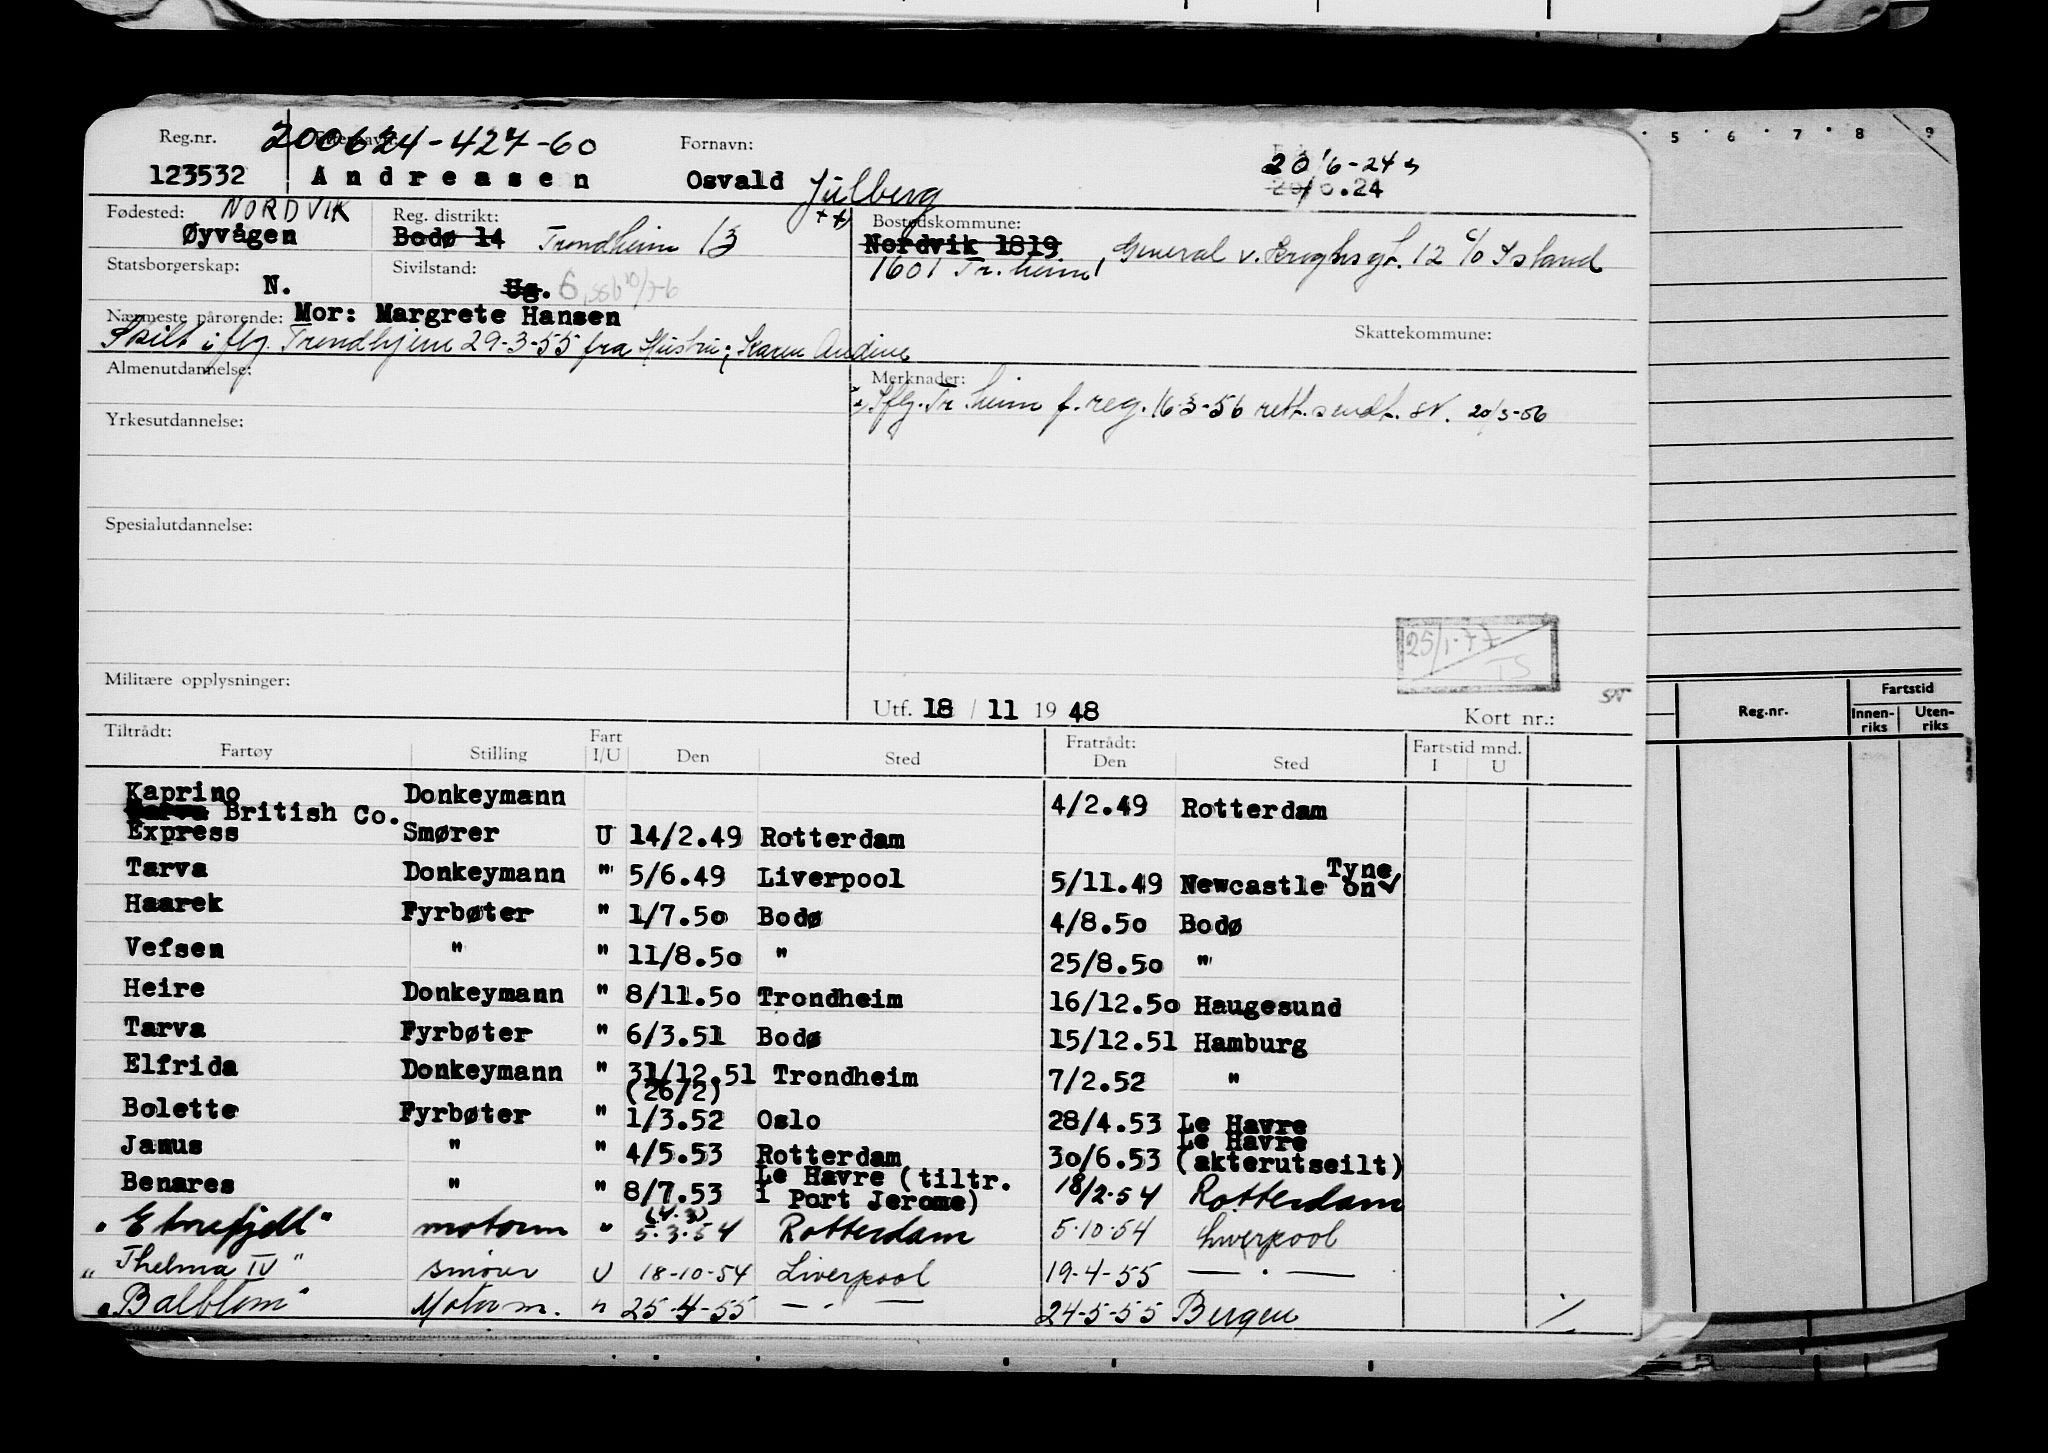 5 6 7 8 9
Reg.nr. 200624-427-60 Fornavn:
123532 Andreasen Osvald Julberg 20/6-24
20/6.24
Fødested: NORDVIK Reg. distrikt: Bostedskommune:
Øyvågen Bodø 14 Trondheim 13 Nordvik 1819 General v. Kroghsgt. 12 c/o Island
Statsborgerskap: Sivilstand: 1601 Tr.heim
N. Ug. G
Nærmeste pårørende: Mor: Margrete Hansen Skattekommune:
Skilt iflg. Trondhjem 29-3-55 fra Hustru; Karen Andine
Almenutdannelse: Merknader:
Iflg. Tr.heim f. reg. 16-3-56 rett. sendt. SN. 20/3-56
Yrkesutdannelse:
Spesialutdannelse:
25/1-77
TS
Militære opplysninger:
Utf. 18 / 11 19 48 Kort nr.: SN
Reg.nr. Fartstid
Innenriks Utenriks
Tiltrådt: Fratrådt: Fartstid mnd.
Fartøy Stilling Fart I/U Den Sted Den Sted I U
Kaprino Donkeymann 4/2.49 Rotterdam
Tarva British Co.
Express Smører U 14/2.49 Rotterdam
Tarva Donkeymann " 5/6.49 Liverpool 5/11.49 Newcastle on Tyne
Haarek Fyrbøter " 1/7.50 Bodø 4/8.50 Bodø
Vefsen " " 11/8.50 " 25/8.50 "
Heire Donkeymann " 8/11.50 Trondheim 16/12.50 Haugesund
Tarva Fyrbøter " 6/3.51 Bodø 15/12.51 Hamburg
Elfrida Donkeymann " 31/12.51 Trondheim 7/2.52 "
(26/2)
Bolette Fyrbøter " 1/3.52 Oslo 28/4.53 Le Havre
Janus " " 4/5.53 Rotterdam 30/6.53 Le Havre (akterutseilt)
Benares " " 8/7.53 Le Havre (tiltr. i Port Jerome) 18/2.54 Rotterdam
(4.3)
"Etnefjell" motorm " 5.3.54 Rotterdam 5.10.54 Liverpool
"Thelma IV" smører U 18-10-54 Liverpool 19-4-55 — . —
"Balblom" Motorm. " 25-4-55 — . — 24-5-55 Bergen